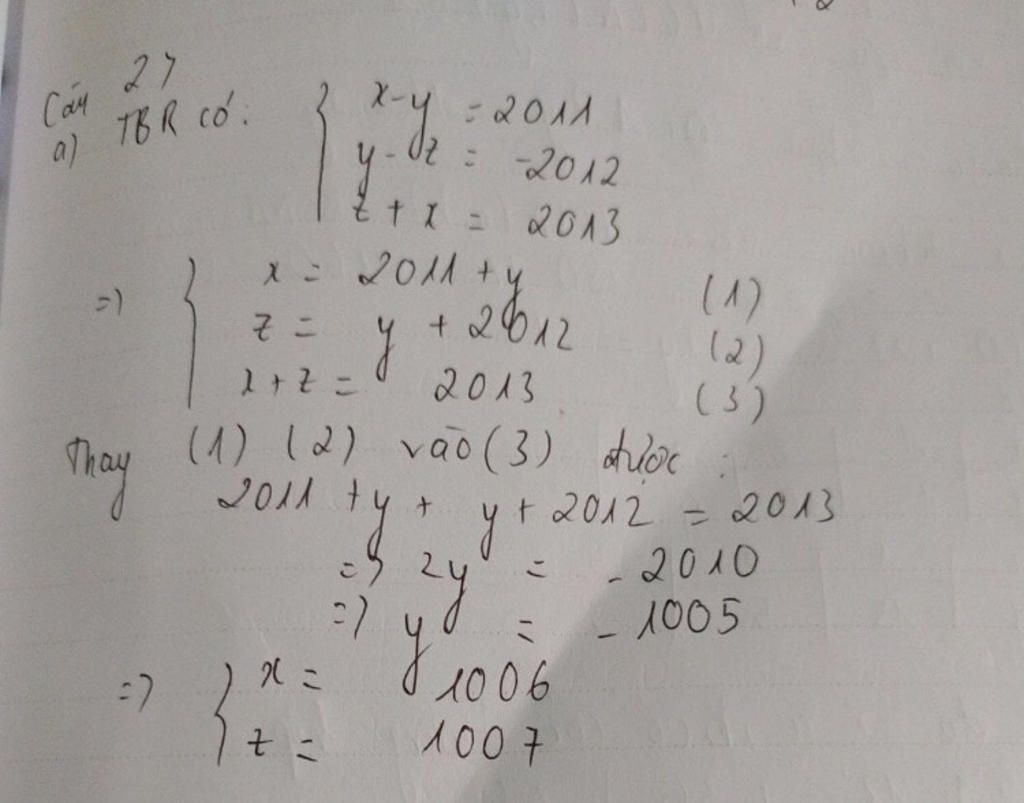 Câu 27
a) TBR có: { x - y = 2011
y - z = -2012
z + x = 2013
=> { x = 2011 + y (1)
z = y + 2012 (2)
x + z = 2013 (3)
Thay (1) (2) vào (3) được :
2011 + y + y + 2012 = 2013
=> 2y = - 2010
=> y = - 1005
=> { x = 1006
z = 1007